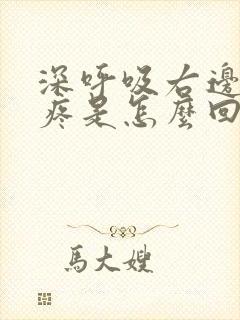 深呼吸右邊
疼是怎麼回
馬大嫂